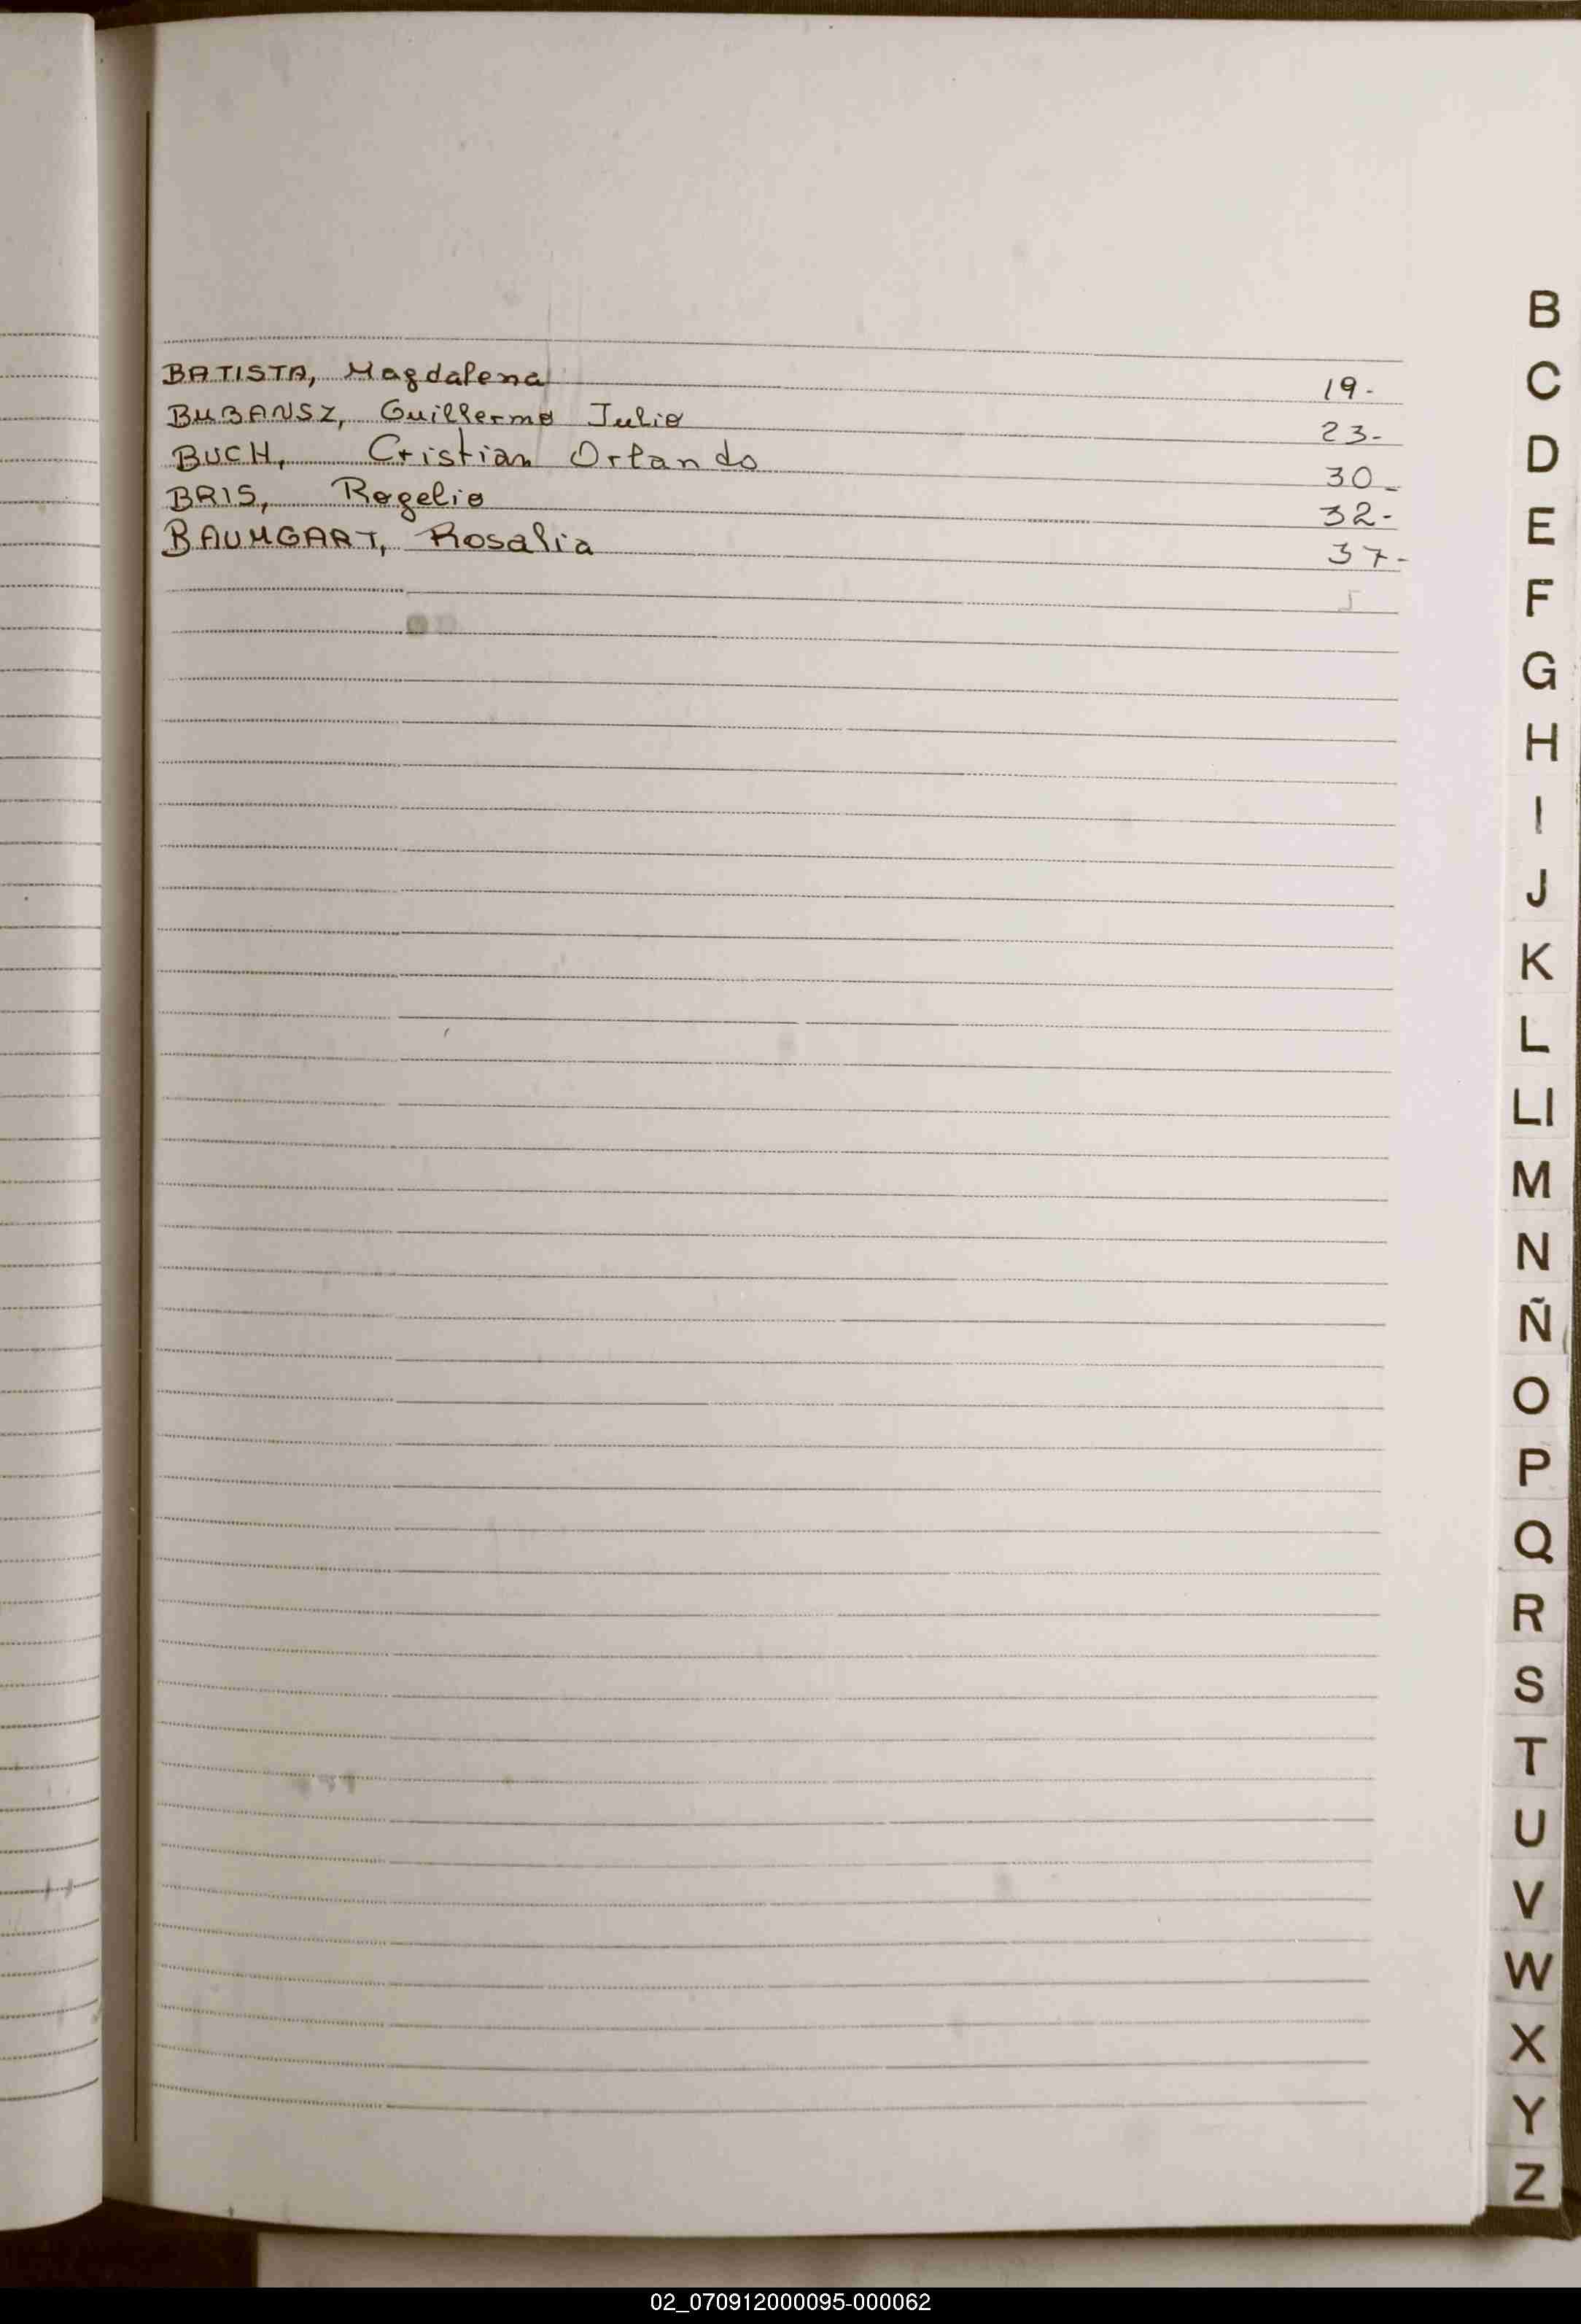 BATISTA, Magdalena 19-
BUBANSZ, Guillermo Julio 23-
BUCH, Cristian Orlando 30-
BRIS, Rogelio 32-
BAUMGART, Rosalia 37-
5
B
C
D
E
F
G
H
I
J
K
L
Ll
M
N
Ñ
O
P
Q
R
S
T
U
V
W
X
Y
Z
02_070912000095-000062